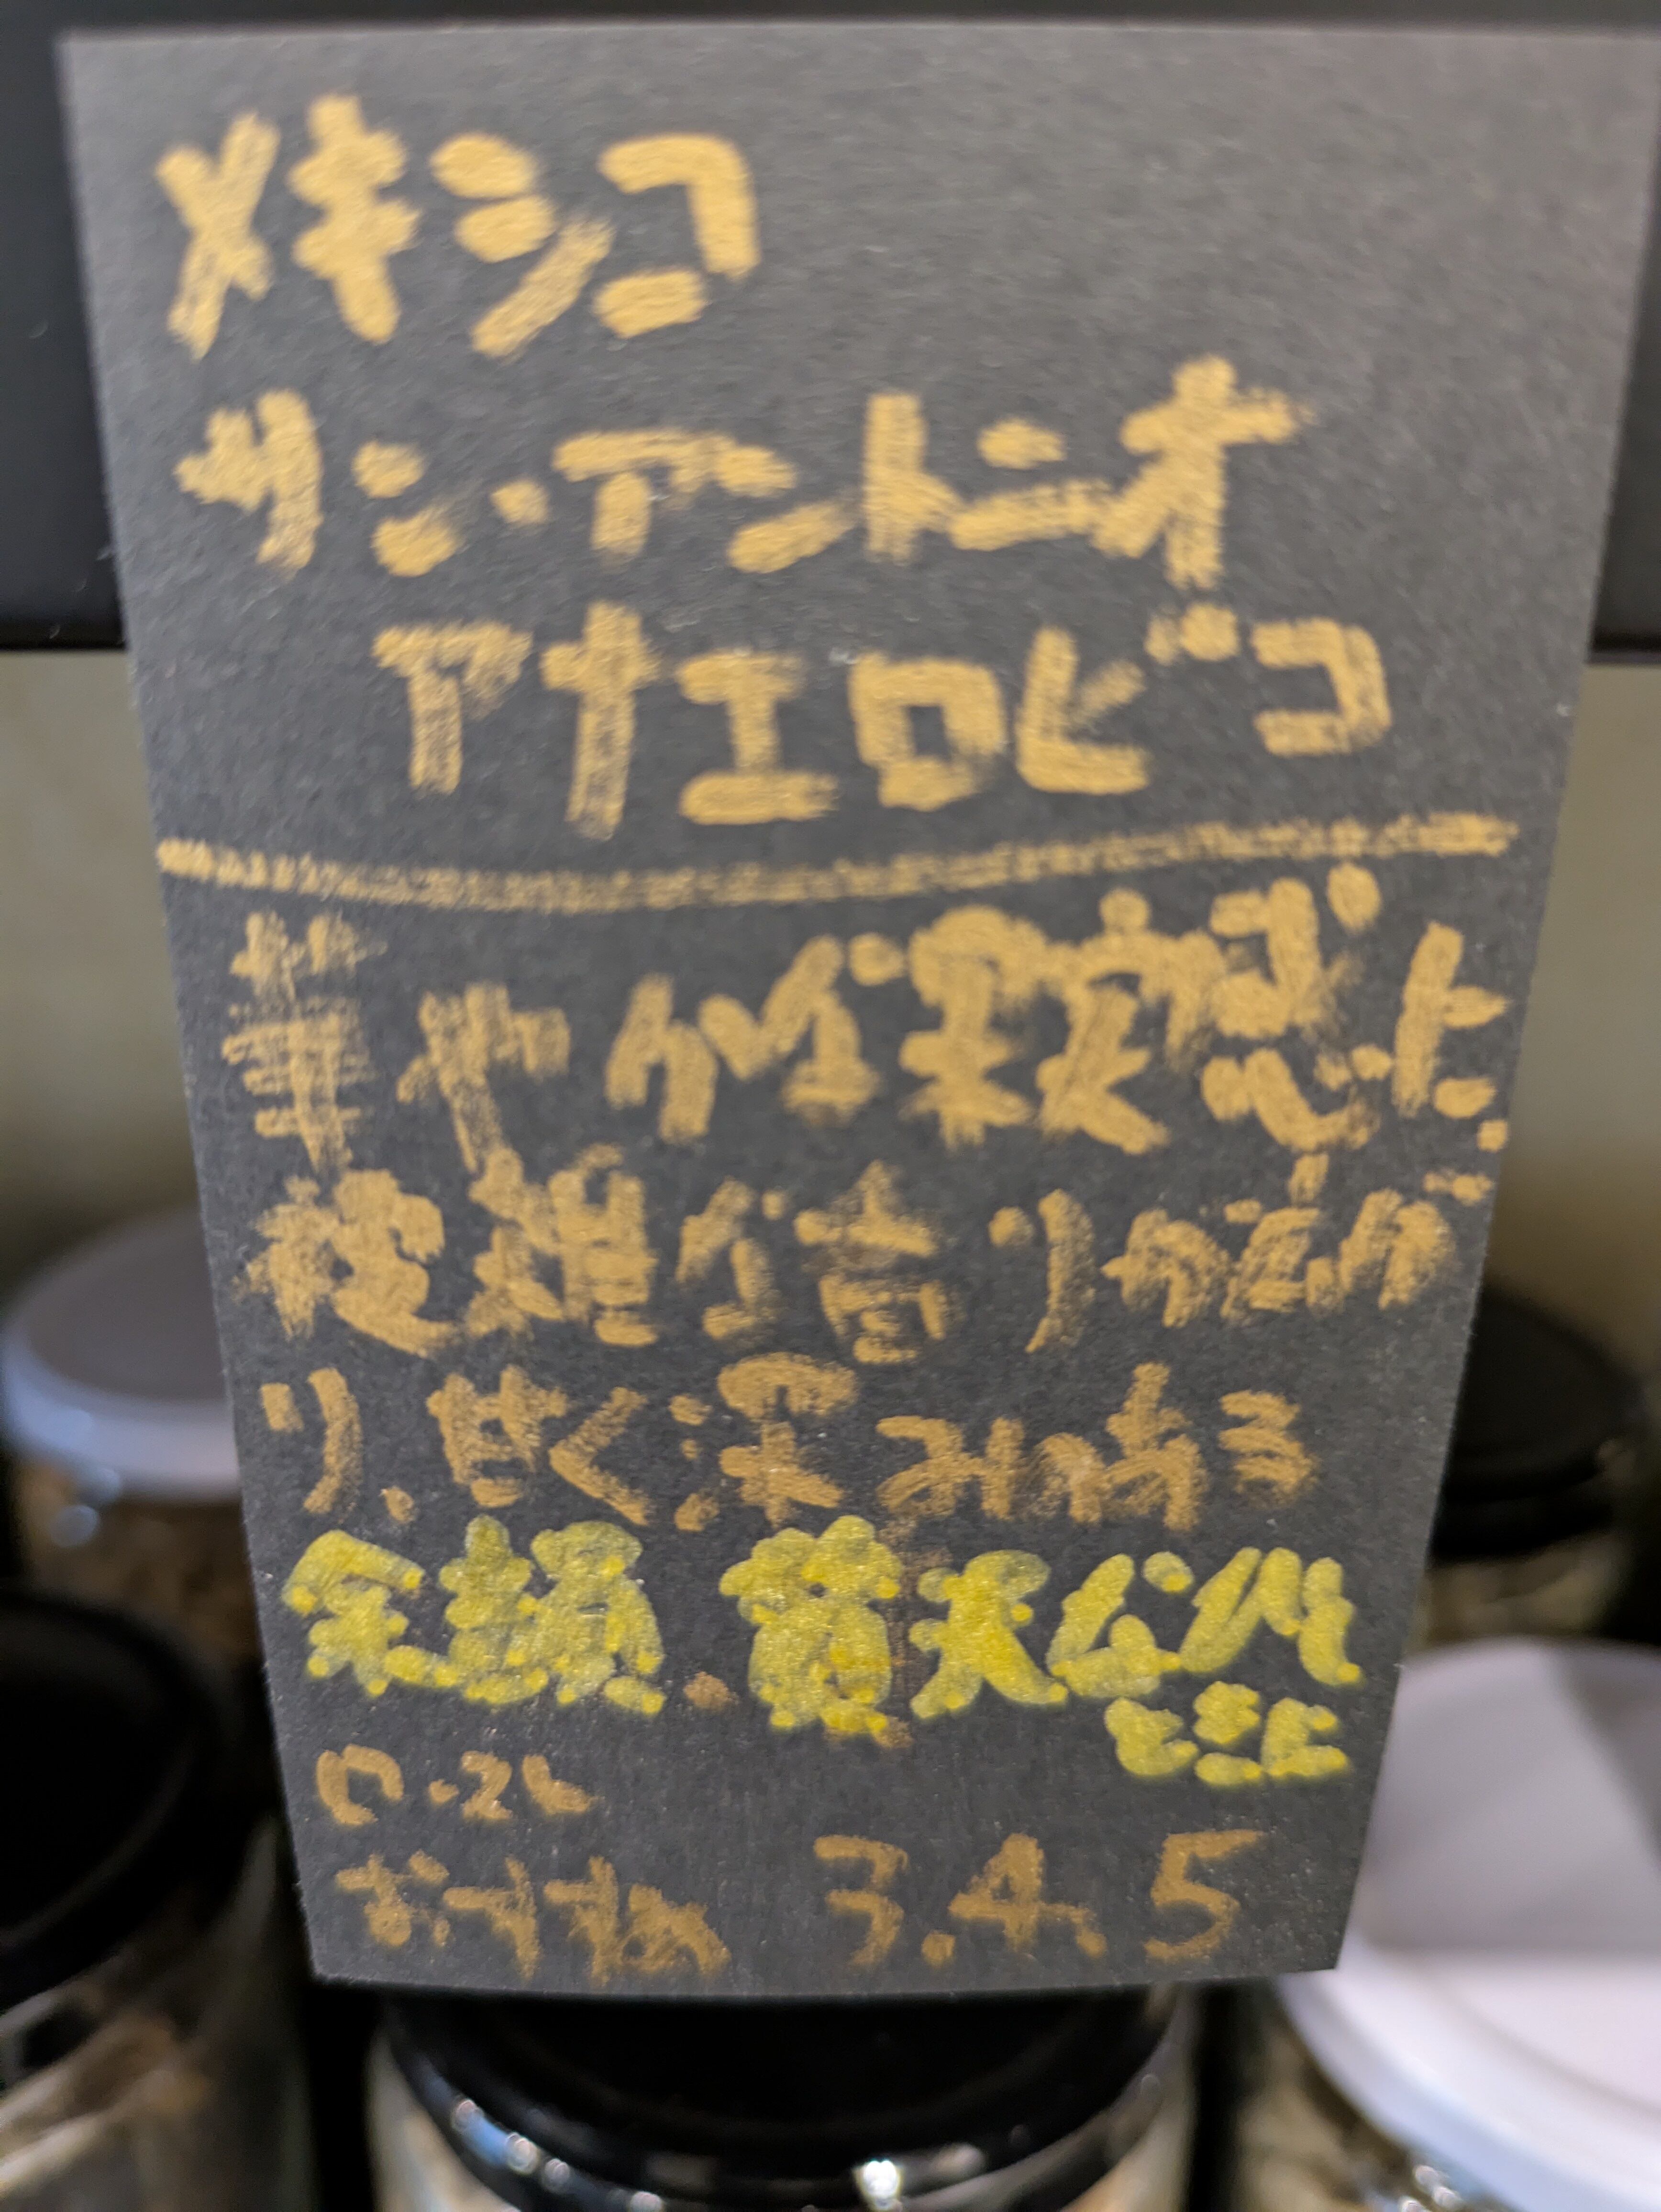 メキシコ
サン・アントニオ
アナエロビコ
華やかな果実感と、
複雑な香りが広が
り、甘く深みのある
余韻。贅沢な
ロースト
おすすめ 3.4.5